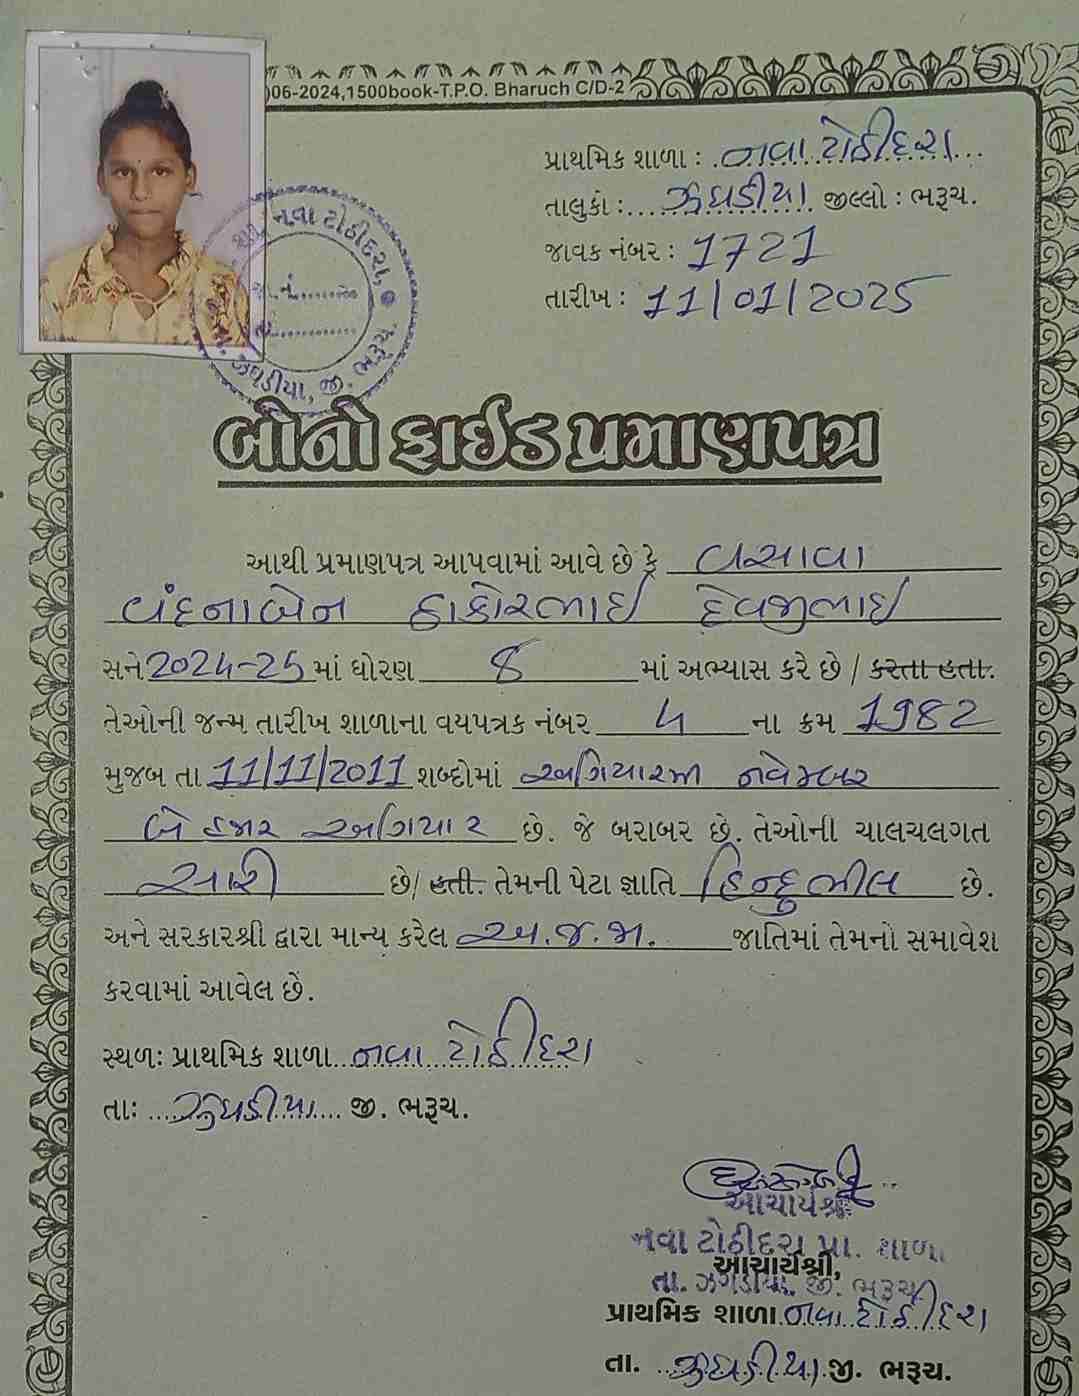 06-2024,1500book-T.P.O. Bharuch C/D-2
પ્રાથમિક શાળા : નવા ટોઠીદરા
તાલુકો : ઝઘડીયા જીલ્લો : ભરૂચ.
જાવક નંબર : 1721
તારીખ : 11/01/2025
શા. નવા ટોઠીદરા,
તા. ઝઘડીયા, જી. ભરૂચ
બોનો ફાઈડ પ્રમાણપત્ર
આથી પ્રમાણપત્ર આપવામાં આવે છે કે વસાવા
વંદનાબેન ઠાકોરભાઇ દેવજીભાઇ
સને 2024-25 માં ધોરણ 8 માં અભ્યાસ કરે છે / કરતા હતા.
તેઓની જન્મ તારીખ શાળાના વયપત્રક નંબર 4 ના ક્રમ 1982
મુજબ તા 11/11/2011 શબ્દોમાં અગિયારમી નવેમ્બર
બે હજાર અગિયાર છે. જે બરાબર છે. તેઓની ચાલચલગત
સારી છે/ હતી. તેમની પેટા જ્ઞાતિ હિન્દુ ભીલ છે.
અને સરકારશ્રી દ્વારા માન્ય કરેલ અ.જ.જા. જાતિમાં તેમનો સમાવેશ
કરવામાં આવેલ છે.
સ્થળઃ પ્રાથમિક શાળા નવા ટોઠીદરા
તાઃ ઝઘડીયા જી. ભરૂચ.
આચાર્યશ્રી
નવા ટોઠીદરા પ્રા. શાળા
આચાર્યશ્રી,
તા. ઝગડીયા. જી. ભરૂચ
પ્રાથમિક શાળા નવા ટોઠીદરા
તા. ઝઘડીયા જી. ભરૂચ.